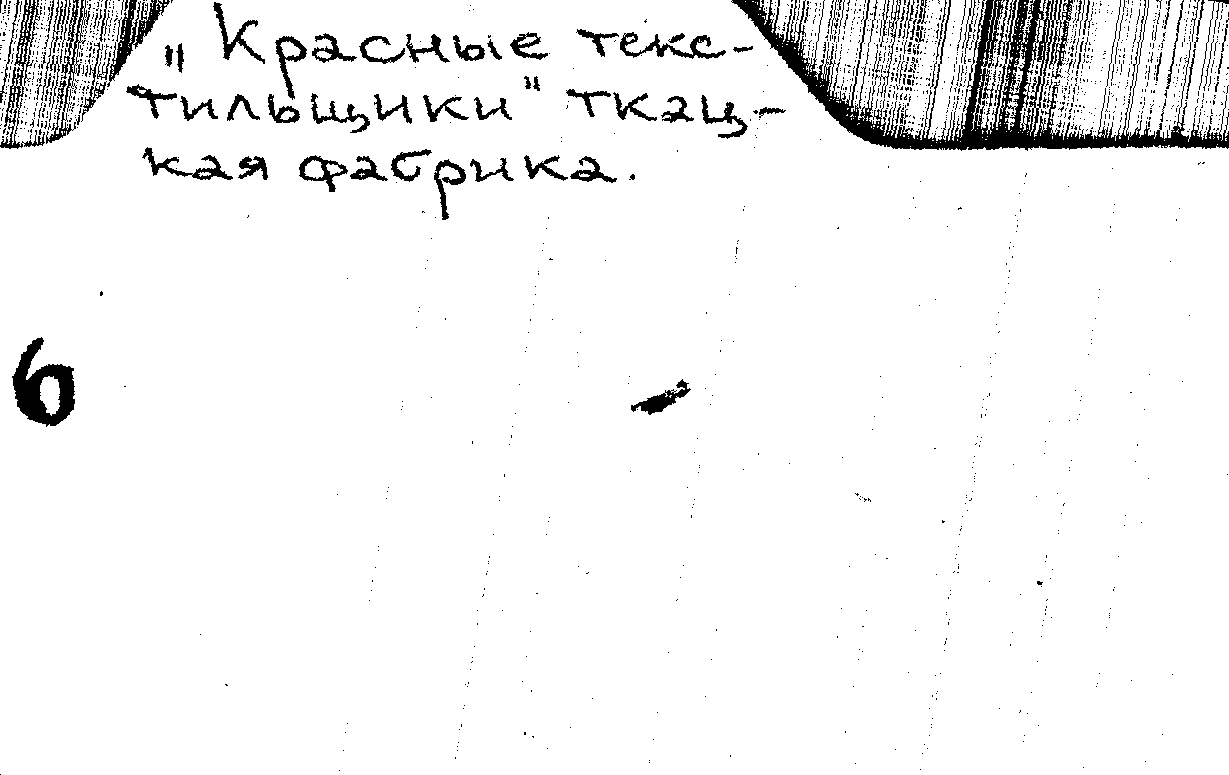 „Красные текс-
тильщики" ткац-
кая фабрика.
6